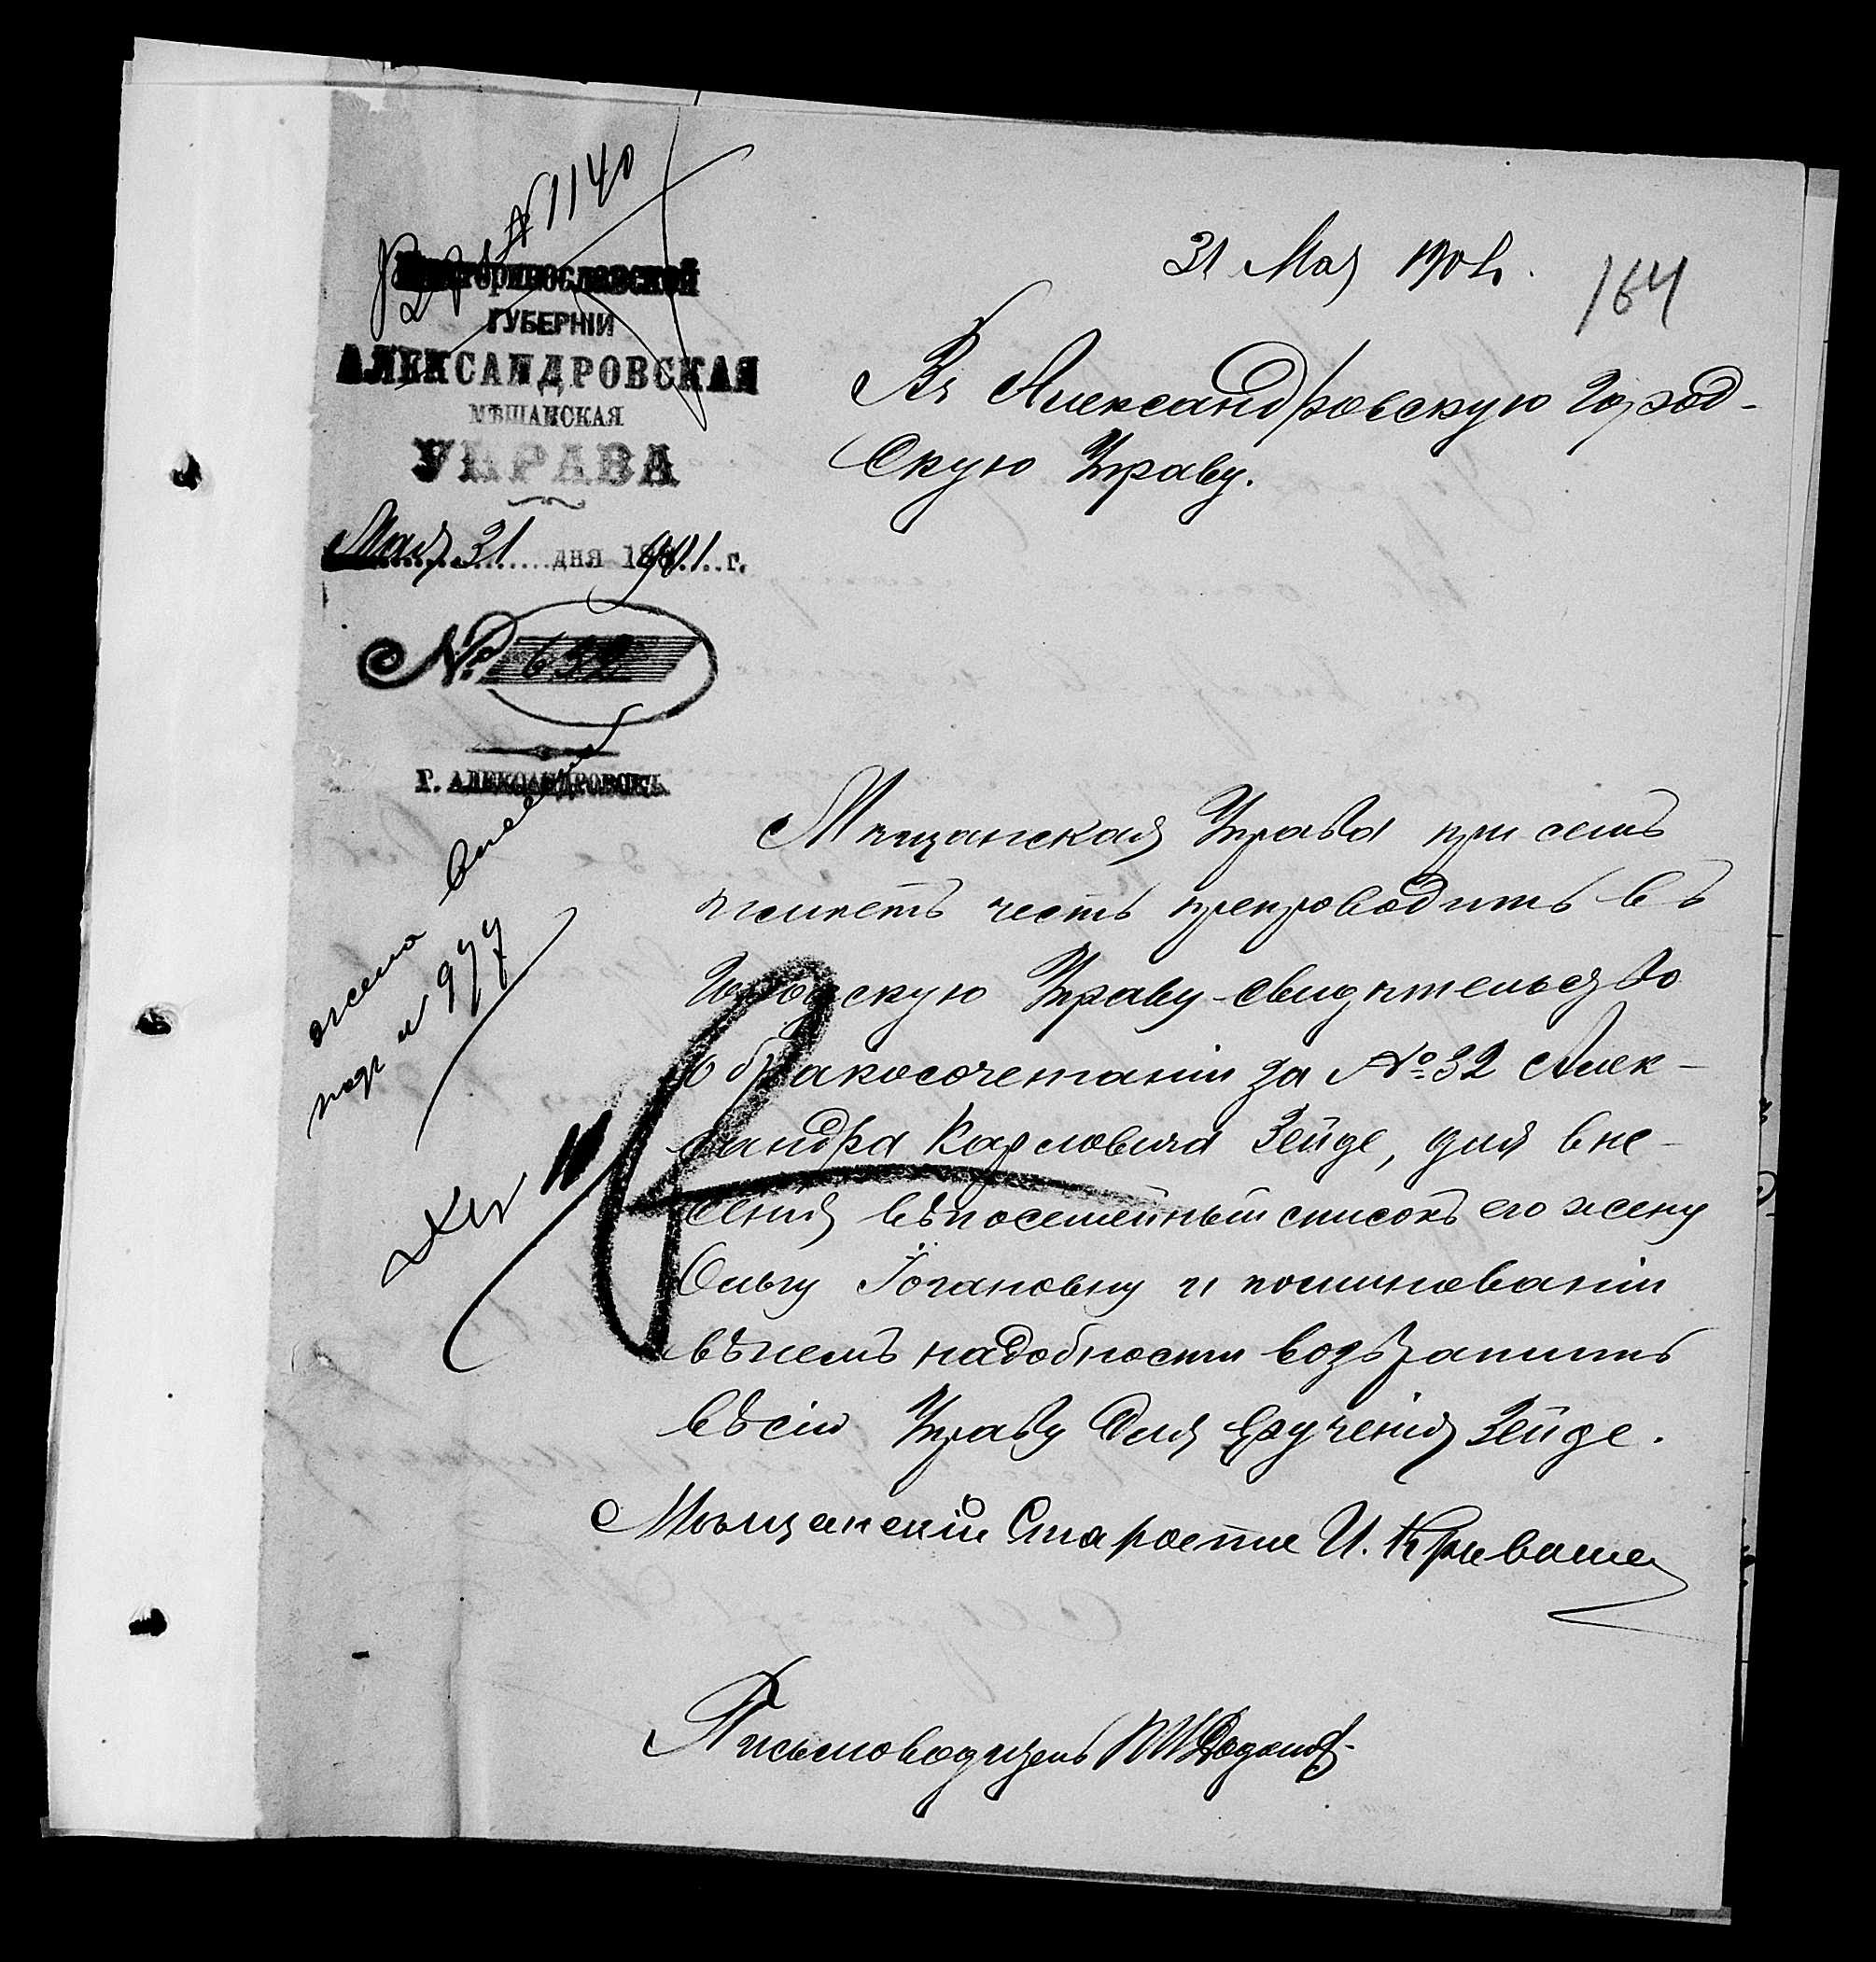 № 1140
Екатеринославской
ГУБЕРНІИ
АЛЕКСАНДРОВСКАЯ
МѢЩАНСКАЯ
УПРАВА
Мая 31 дня 1901 г.
№ 632
Г. АЛЕКСАНДРОВСКЪ
31 Мая 1901.
164
Въ Александровскую Город-
скую Управу.
Мѣщанская Управа при семъ
имѣетъ честь препроводить въ
Городскую Управу свидѣтельство
о бракосочетаніи за № 32 Алек-
сандра Карловича Зейде, для вне-
сенія въ посемейный списокъ его жену
Ольгу Іогановну и по миновании
въ немъ надобности возвратить
въ сію Управу для врученія Зейде.
Мѣщанскій Староста И.
Письмоводитель
жена внесена
подъ № 977